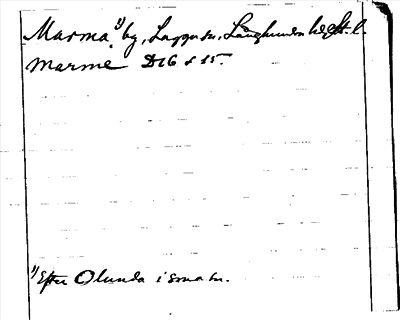 Marma 1) by, Lagga sn, Långhundra hd, St. l.
Marme DTb 6 s 15.
1) Efter Olunda i sma sn.